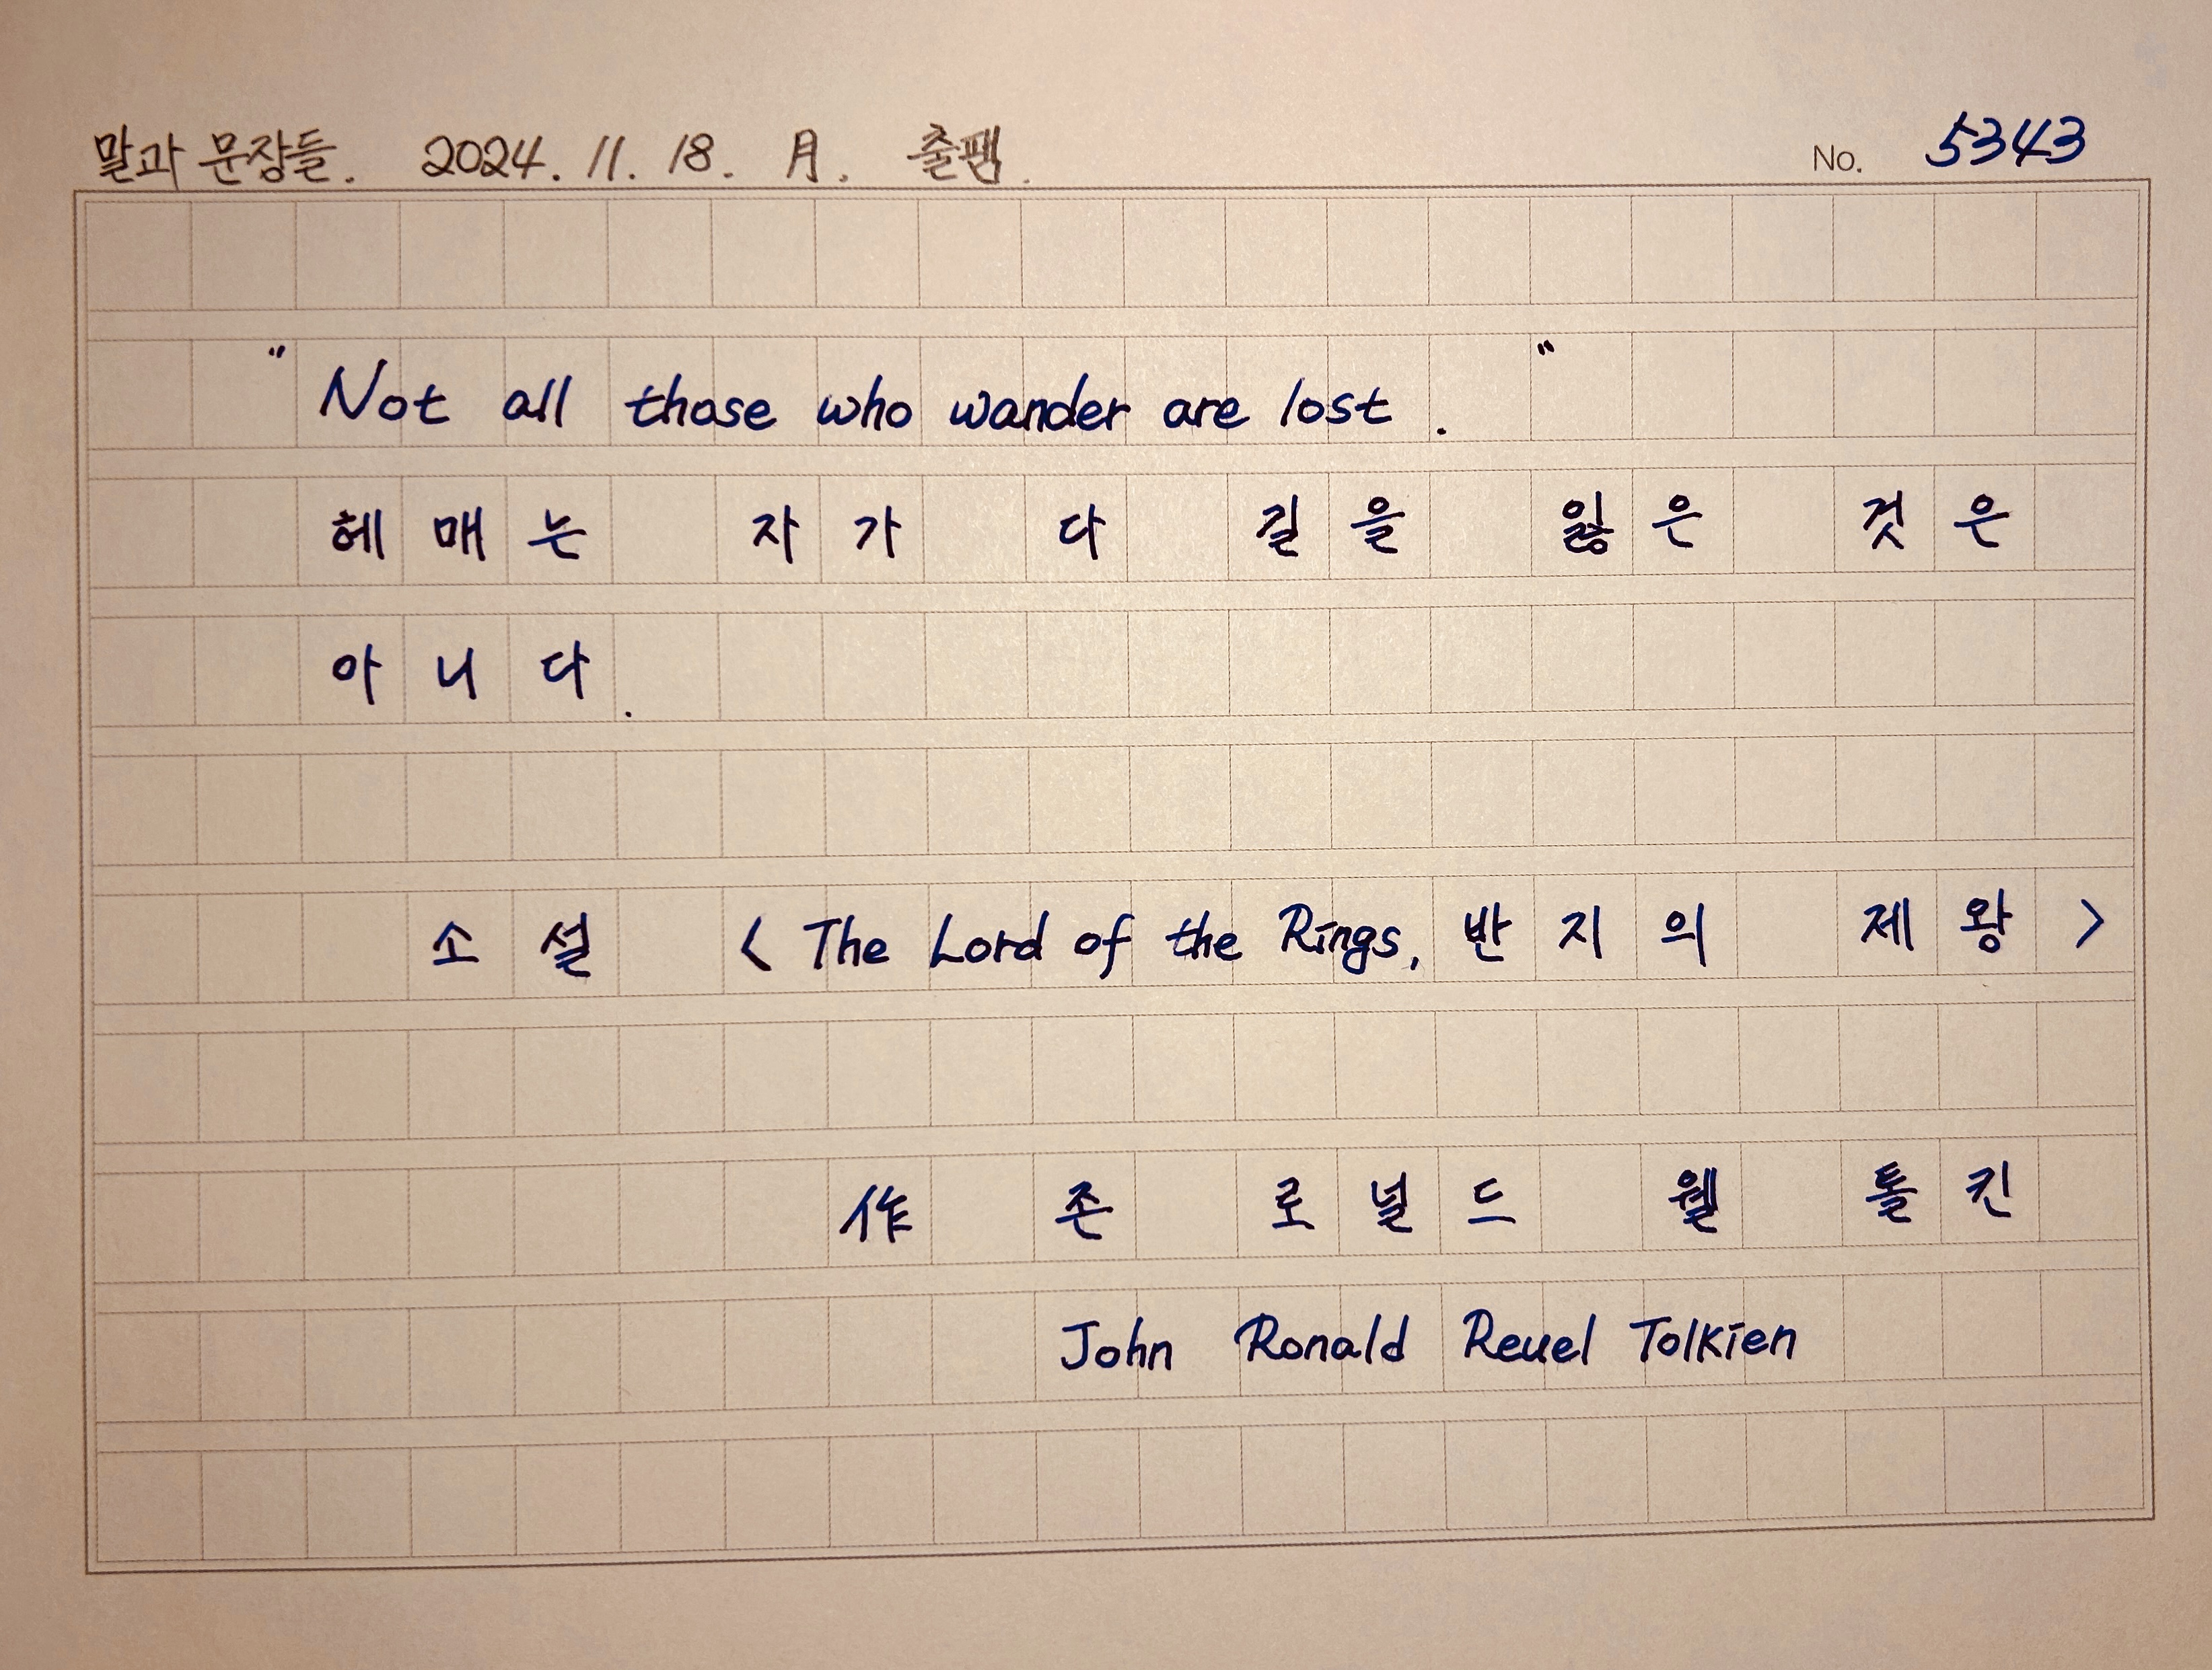 말과 문장들. 2024. 11. 18. 月. 출펜. No. 5343
"Not all those who wander are lost."
헤매는 자가 다 길을 잃은 것은
아니다.
소설 <The Lord of the Rings, 반지의 제왕>
作 존 로널드 웰 톨킨
John Ronald Reuel Tolkien